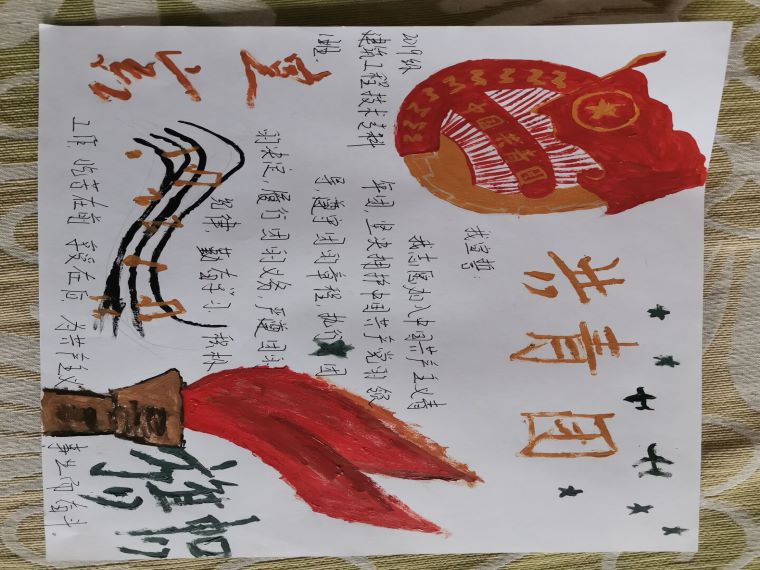 共青团
中国共青团
我宣誓:
我志愿加入中国共产主义青
年团,坚决拥护中国共产党的领
导,遵守团的章程,执行团
的决定,履行团的义务,严遵团的
纪律,勤奋学习 积极
工作 吃苦在前 享受在后 为共产主义
事业而奋斗.
2019级
建筑工程技术专科
1班.
旗帜